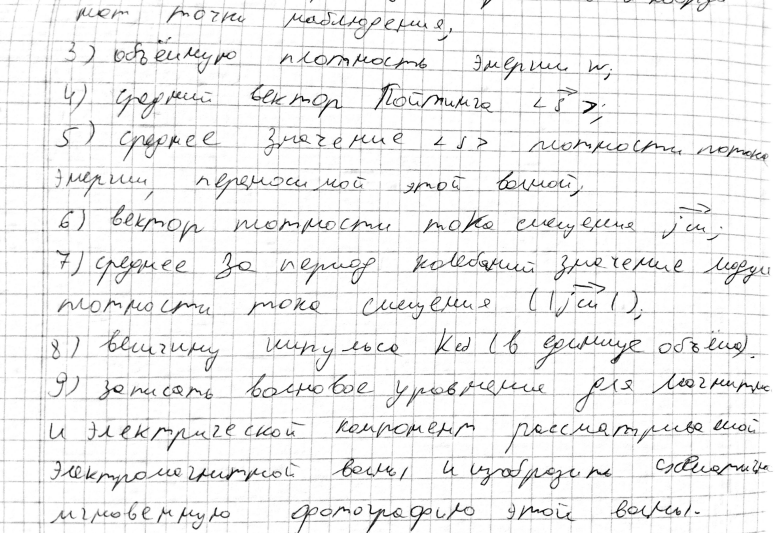 нат точки наблюдения;
3) объёмную плотность энергии w;
4) средний вектор Пойтинга <S>;
5) среднее значение <s> плотности потока
энергии, переносимой этой волной;
6) вектор плотности тока смещения jсм;
7) среднее за период колебаний значение модул
плотности тока смещения (|jсм|);
8) величину импульса Kед (в единице объёма).
9) записать волновое уравнение для магнитн
и электрической компонент рассматриваемой
электромагнитной волны и изобразить схематичн
мгновенную фотографию этой волны.